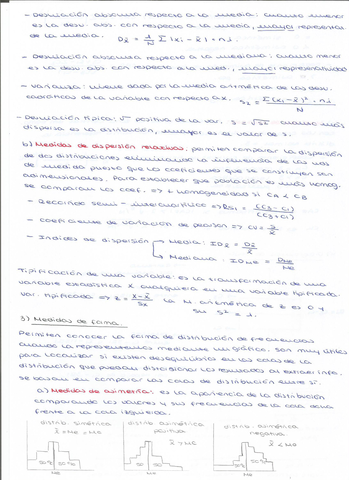 - Desviación absoluta respecto a la media: cuanto menor
es la desv. abs. con respecto a la media, mayor representat.
de la media. D_x̄ = 1/N Σ |xi - x̄| · ni
- Desviación absoluta respecto a la mediana: cuanto menor
es la desv. abs. con respecto a la med., mayor representatividad
- Varianza: viene dada por la media aritmética de las desv.
cuadráticas de la variable con respecto a x̄. = Σ(xi-x̄)² · ni / N
- Desviación típica: √ positiva de la var. S = √S² cuanto más
dispersa es la distribución, mayor es el valor de S.
b) Medidas de dispersión relativas: permiten comparar la dispersión
de dos distribuciones eliminando la influencia de las uds
de medida puesto que los coeficientes que se construyen son
adimensionales. Para establecer que población es más homog.
se comparan los coef. => + homogeneidad si CA < CB
- Recorrido semi-intercuartílico => = (C3-C1) / (C3+C1)
- Coeficiente de variación de pearson => CV = S/x̄
- Indices de dispersión
Media: ID_x̄ = D_x̄ / x̄
Mediana: ID_Me = D_Me / Me
Tipificación de una variable: es la transformación de una
variable estadística X cualquiera en una variable tipificada.
Var. tipificada => Z = X-X̄ / Sx la M. aritmética de Z es 0 y
su = 1.
3) Medidas de forma.
Permiten conocer la forma de distribución de frecuencias
cuando la representamos mediante un gráfico, son muy útiles
para localizar si existen desequilibrios en las colas de la
distribución que puedan distorsionar los resultados al extraer info.
se basan en comparar las colas de distribución entre sí.
a) Medidas de asimetría: es la apariencia de la distribución
comparando los valores y sus frecuencias de la cola derecha
frente a la cola izquierda.
distrib. simétrica
distrib. asimétrica
positiva
distrib. asimétrica
negativa
x̄ = Mo = Me
x̄ > Me
x̄ < Me
50% 50%
Me